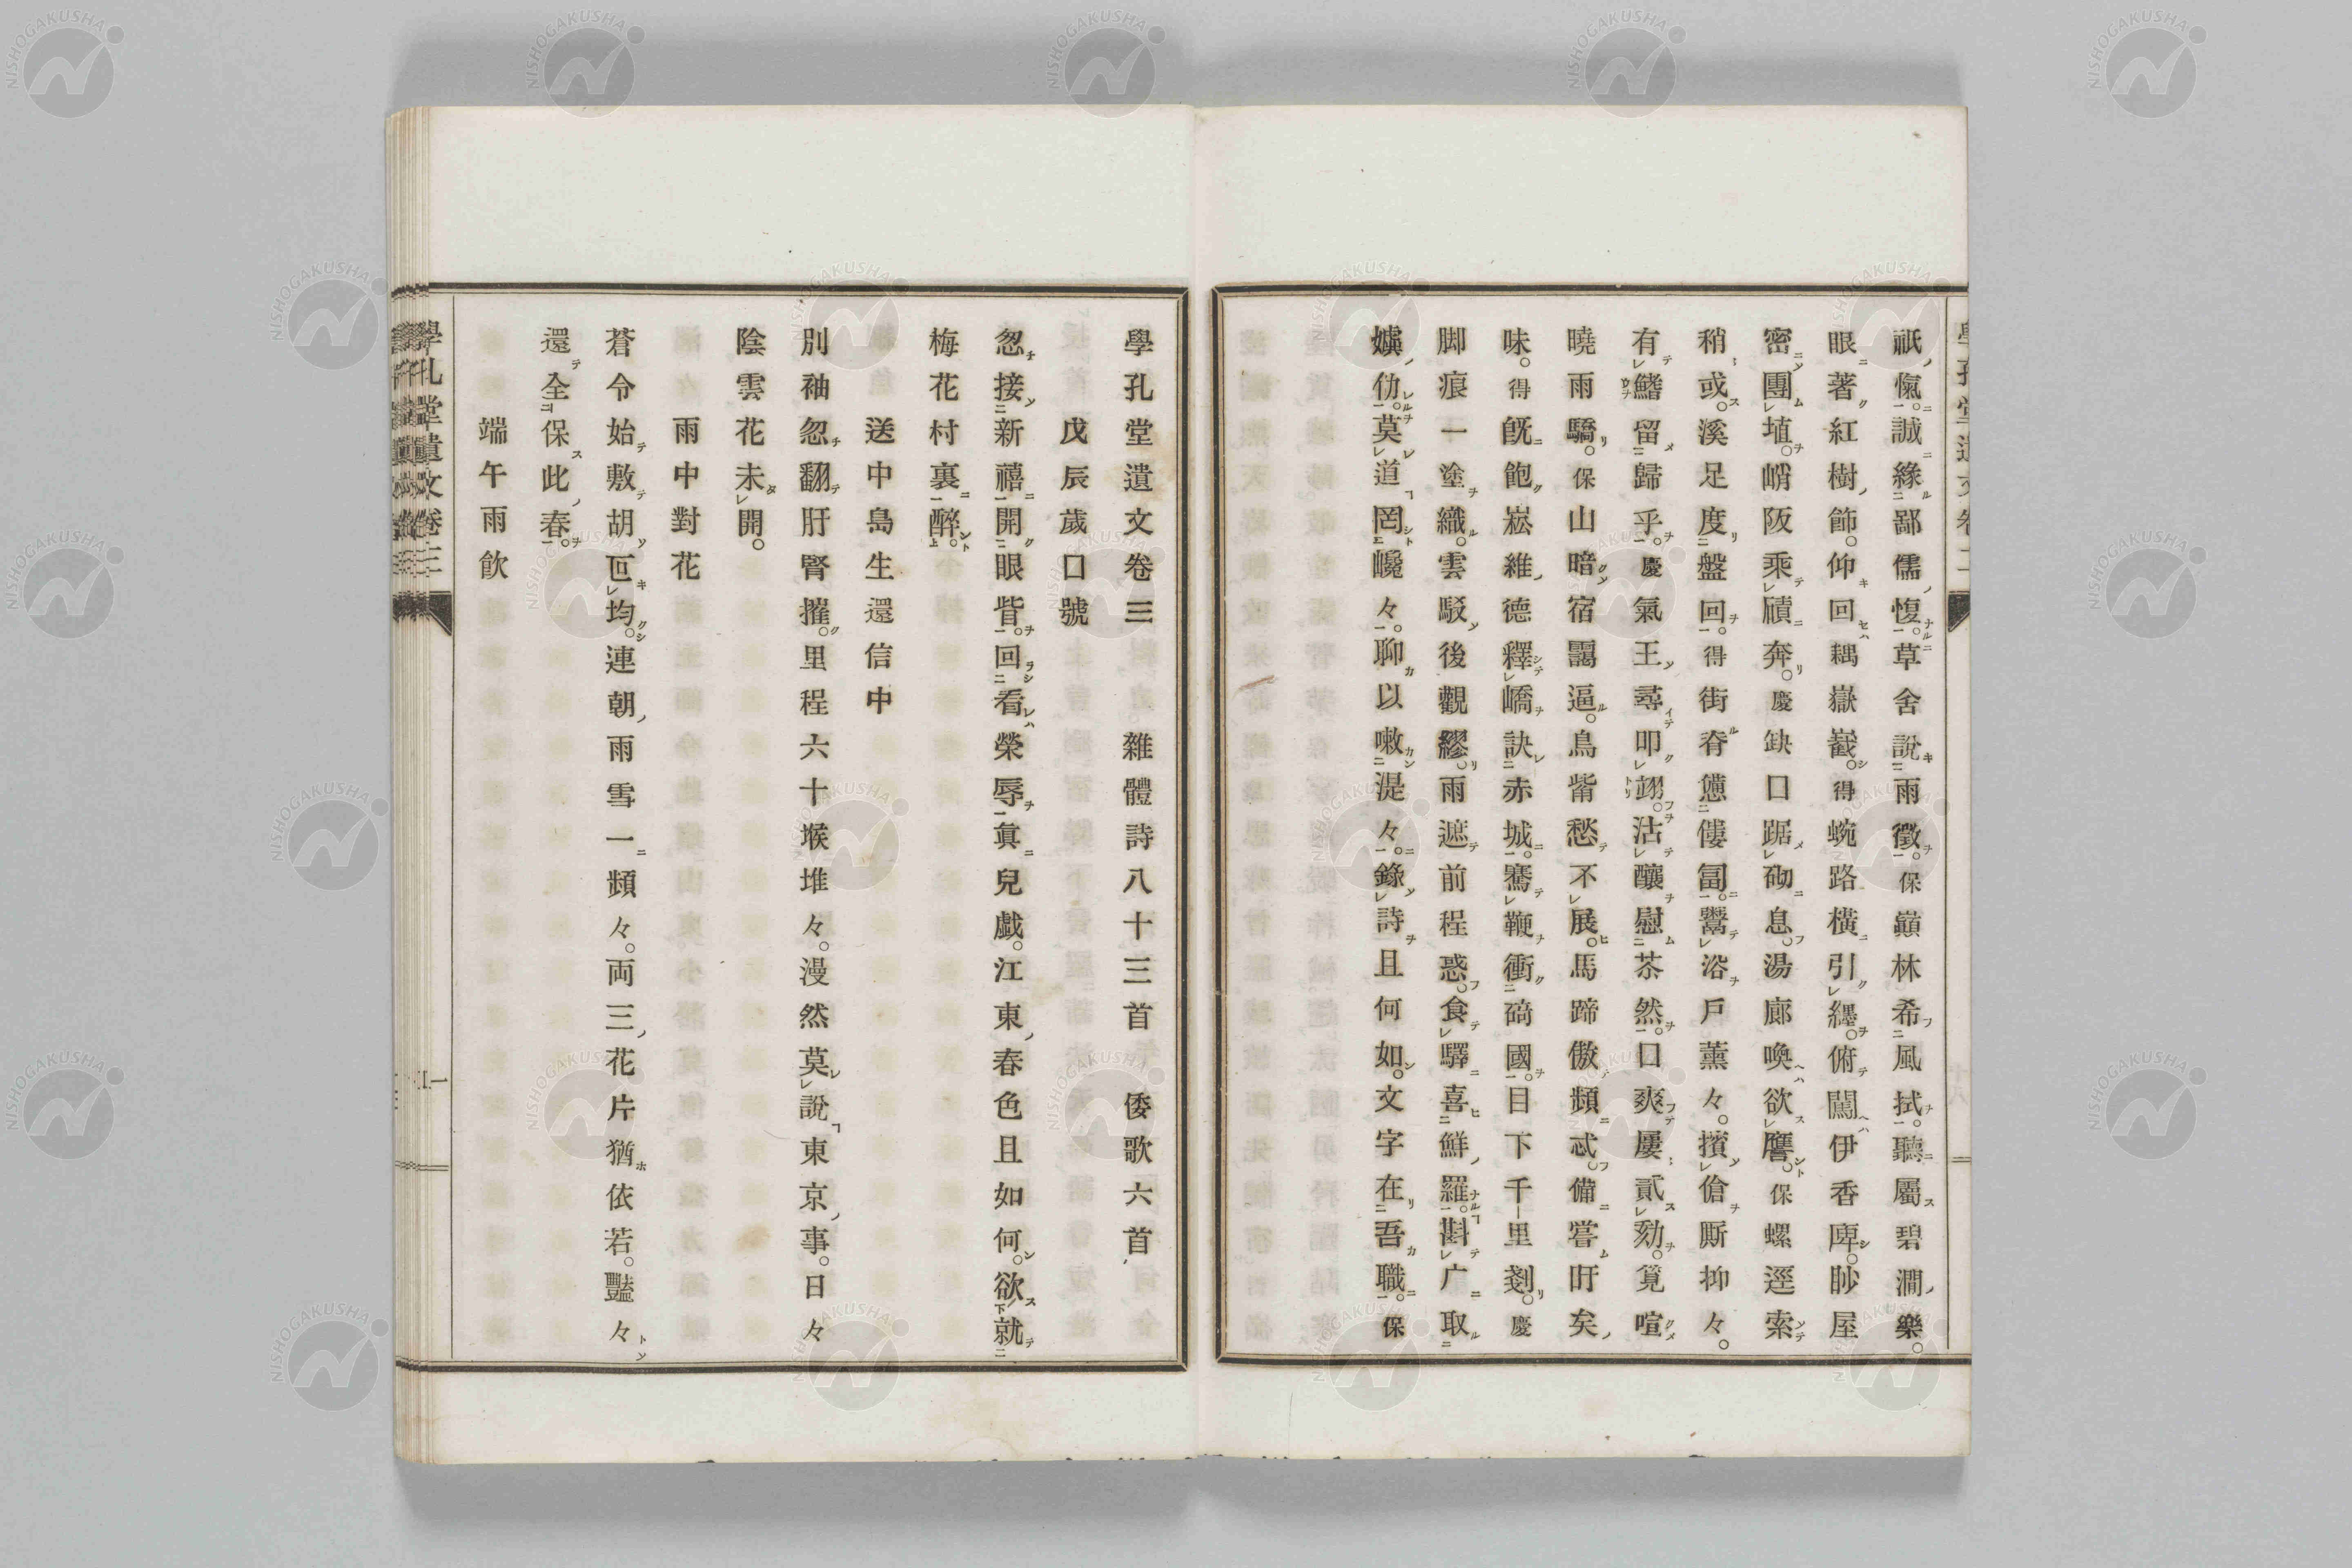 祇愾。誠緣鄙儒愎。草舍說雨徵。保巔林希風拭。聽屬碧澗樂。
眼著紅樹飾。仰回耦嶽嶻。得蜿路橫引纆。俯闖伊香庳。眇屋
密團埴。峭阪乘磧奔。慶缺口踞砌息。湯廊喚欲譍。保螺逕索
稍或。溪足度盤回。得街脊憊僂匐。鬻浴戶薰々。擯傖厮抑々。
有鰭留歸乎。慶氣王尋叩翊。沽釀慰茶然。口爽屢貳劾。筧喧
曉雨驕。保山暗宿靄逼。鳥觜愁不展。馬蹄傲頻忒。備嘗旴矣
味。得旣飽崧維德釋嶠訣赤城。騫鞭衝碻國。目下千里剗。慶
脚痕一塗織。雲駁後觀繆。雨遮前程惑。食驛喜鮮羅。斟广取
嬶仂。莫道罔巉々。聊以嗽湜々。錄詩且何如。文字在吾職。保
學孔堂遺文卷三 雜體詩八十三首 倭歌六首
戊辰歲口號
忽接新禧開眼眥。回看榮辱眞兒戲。江東春色且如何。欲就
梅花村裏醉。
送中島生還信中
別袖忽翻肝腎摧。里程六十堠堆々。漫然莫說東京事。日々
陰雲花未開。
雨中對花
蒼令始敷胡叵均。連朝雨雪一頻々。両三花片猶依若。豔々
還全保此春。
端午雨飮
學孔堂遺文卷三